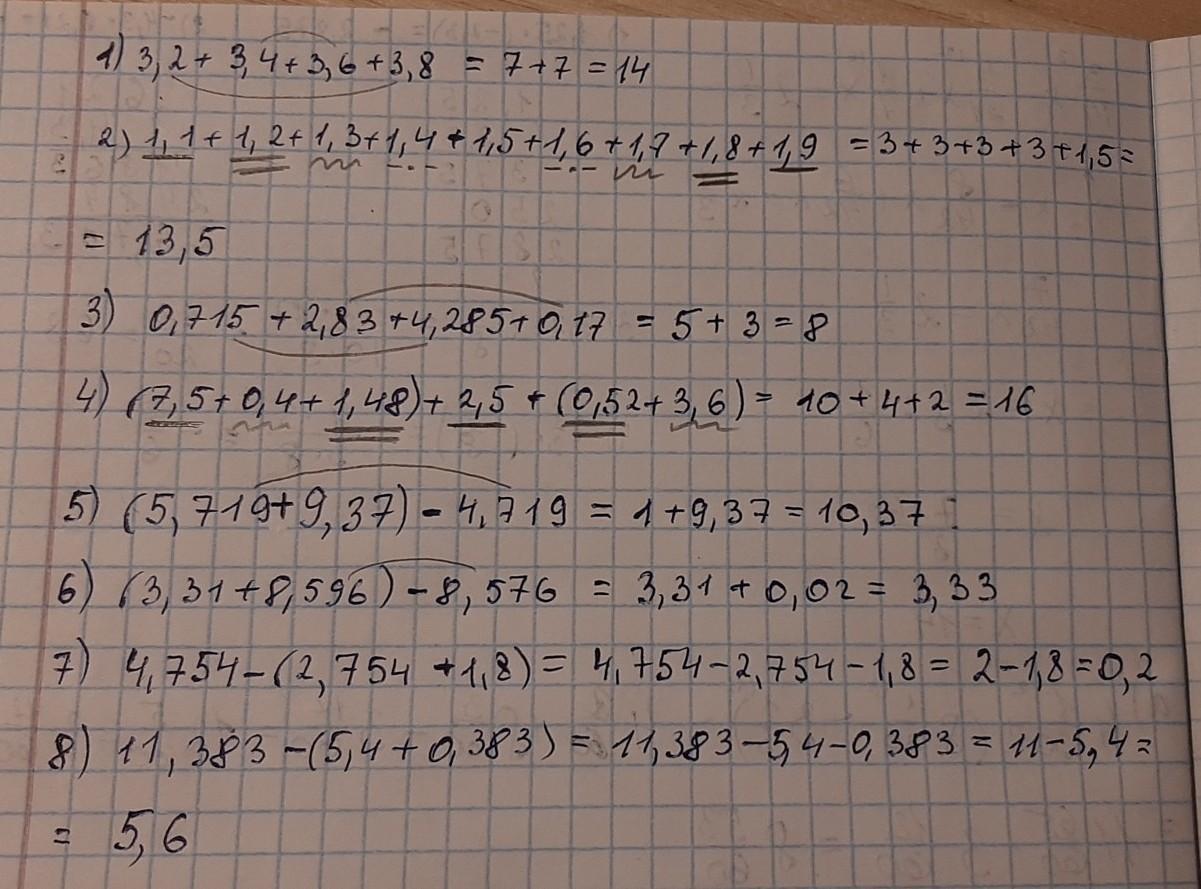 1) 3,2 + 3,4 + 3,6 + 3,8 = 7 + 7 = 14
2) 1,1 + 1,2 + 1,3 + 1,4 + 1,5 + 1,6 + 1,7 + 1,8 + 1,9 = 3 + 3 + 3 + 3 + 1,5 =
= 13,5
3) 0,715 + 2,83 + 4,285 + 0,17 = 5 + 3 = 8
4) (7,5 + 0,4 + 1,48) + 2,5 + (0,52 + 3,6) = 10 + 4 + 2 = 16
5) (5,719 + 9,37) - 4,719 = 1 + 9,37 = 10,37
6) (3,31 + 8,596) - 8,576 = 3,31 + 0,02 = 3,33
7) 4,754 - (2,754 + 1,8) = 4,754 - 2,754 - 1,8 = 2 - 1,8 = 0,2
8) 11,383 - (5,4 + 0,383) = 11,383 - 5,4 - 0,383 = 11 - 5,4 =
= 5,6